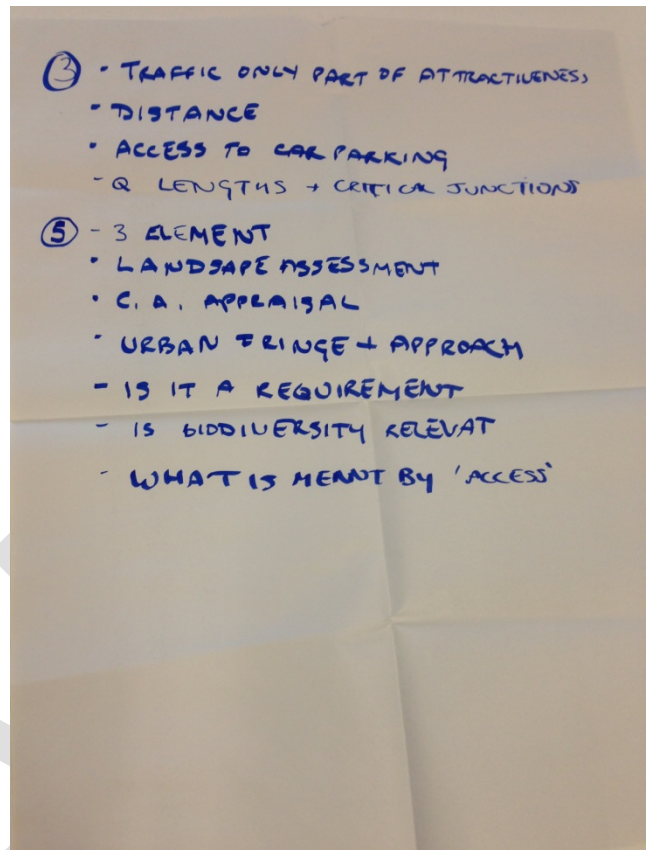 ③ • TRAFFIC ONLY PART OF ATTRACTIVENESS,
- DISTANCE
• ACCESS TO CAR PARKING
- Q LENGTHS + CRITICAL JUNCTIONS
⑤ - 3 ELEMENT
• LANDSAPE ASSESSMENT
• C. A. APPRAISAL
- URBAN FRINGE + APPROACH
- IS IT A REQUIREMENT
- IS BIODIVERSITY RELEVAT
- WHAT IS MEANT BY 'ACCESS'